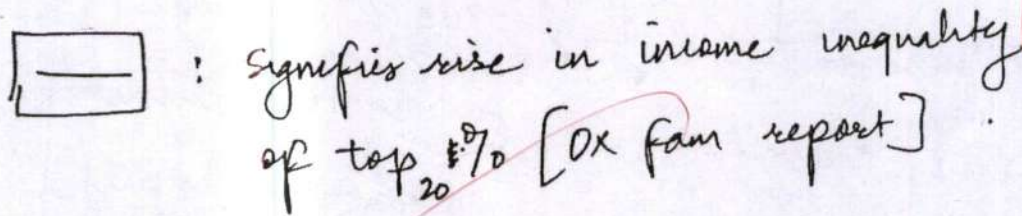 : Signifies rise in income inequality
of top 20 % [Ox fam report].